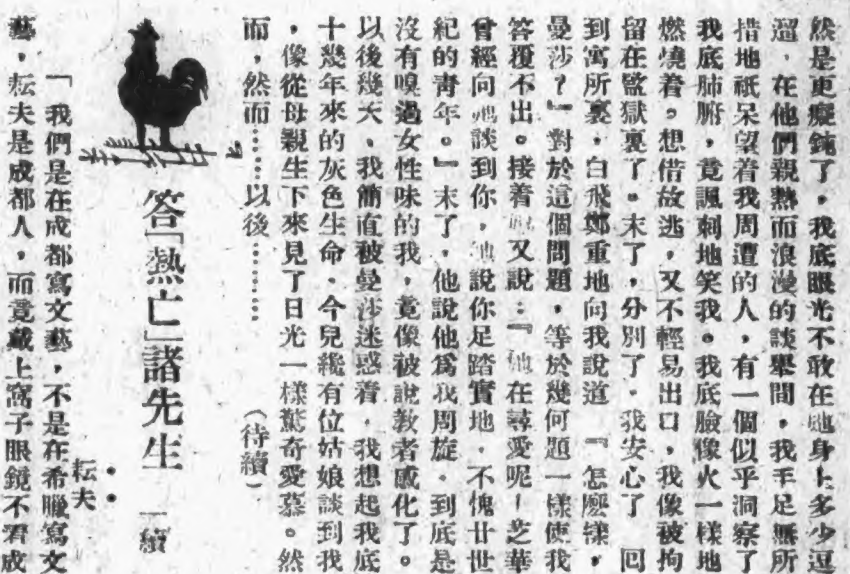 然是更癡鈍了，我底眼光不敢在她身上多少逗
遛，在他們親熱而浪漫的談舉間，我手足無所
措地祇呆望着我周遭的人，有一個似乎洞察了
我底肺腑，竟諷刺地笑我。我底臉像火一樣地
燃燒着。想借故逃，又不輕易出口，我像被拘
留在監獄裏了。末了，分別了，我安心了　回
到寓所裏，白飛鄭重地向我說道　『怎麽樣，
曼莎？』對於這個問題，等於幾何題一樣使我
答覆不出。接着 又說：『她在尋愛呢！芝華
曾經向她談到你，她說你足踏實地，不愧廿世
紀的青年。』末了，他說他爲我周旋，到底是
沒有嗅過女性味的我，竟像被說教者感化了。
以後幾天、我簡直被曼莎迷惑着，我想起我底
十幾年來的灰色生命，今兒纔有位姑娘談到我
，像從母親生下來見了日光一樣驚奇愛慕。然
而，然而……以後…………（待續）
答「熱亡」諸先生　一續
耘夫
「我們是在成都寫文藝，不是在希臘寫文
藝，耘夫是成都人，而竟戴上窩子眼鏡不看成